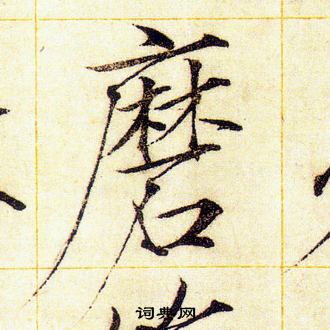 磨
词典网